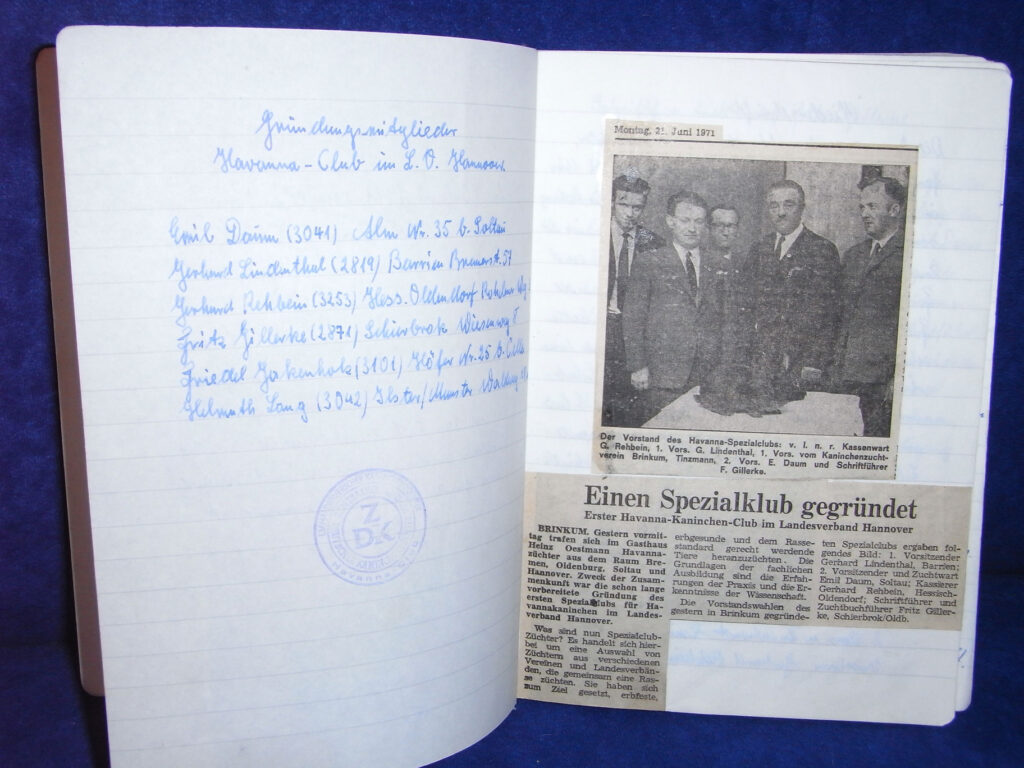 Gründungsmitglieder
Havanna-Club im L. V. Hannover.
Emil Daum (3041) Alm Nr. 35 b. Soltau
Gerhard Lindenthal (2819) Barrien Bremerst. 57
Gerhard Rehbein (3253) Hess. Oldendorf
Fritz Gillerke (2871) Schierbrok Wiesenweg
Friedel Jakenholz (3101) Höfer Nr. 25 b. Celle
Helmuth Lang (3042) Ilster/Munster
ZDK
Havanna
Montag, 21. Juni 1971
Der Vorstand des Havanna-Spezialclubs: v. l. n. r. Kassenwart
G. Rehbein, 1. Vors. G. Lindenthal, 1. Vors. vom Kaninchenzucht-
verein Brinkum, Tinzmann, 2. Vors. E. Daum und Schriftführer
F. Gillerke.
Einen Spezialklub gegründet
Erster Havanna-Kaninchen-Club im Landesverband Hannover
BRINKUM. Gestern vormit-
tag trafen sich im Gasthaus
Heinz Oestmann Havanna-
züchter aus dem Raum Bre-
men, Oldenburg, Soltau und
Hannover. Zweck der Zusam-
menkunft war die schon lange
vorbereitete Gründung des
ersten Spezialklubs für Ha-
vannakaninchen im Landes-
verband Hannover.
Was sind nun Spezialclub-
Züchter? Es handelt sich hier-
bei um eine Auswahl von
Züchtern aus verschiedenen
Vereinen und Landesverbän-
den, die gemeinsam eine Ras-
se züchten. Sie haben sich
zum Ziel gesetzt, erbfeste,
erbgesunde und dem Rasse-
standard gerecht werdende
Tiere heranzuzüchten. Die
Grundlagen der fachlichen
Ausbildung sind die Erfah-
rungen der Praxis und die Er-
kenntnisse der Wissenschaft.
Die Vorstandswahlen des
gestern in Brinkum gegründe-
ten Spezialclubs ergaben fol-
gendes Bild: 1. Vorsitzender
Gerhard Lindenthal, Barrien;
2. Vorsitzender und Zuchtwart
Emil Daum, Soltau; Kassierer
Gerhard Rehbein, Hessisch-
Oldendorf; Schriftführer und
Zuchtbuchführer Fritz Giller-
ke, Schierbrok/Oldb.